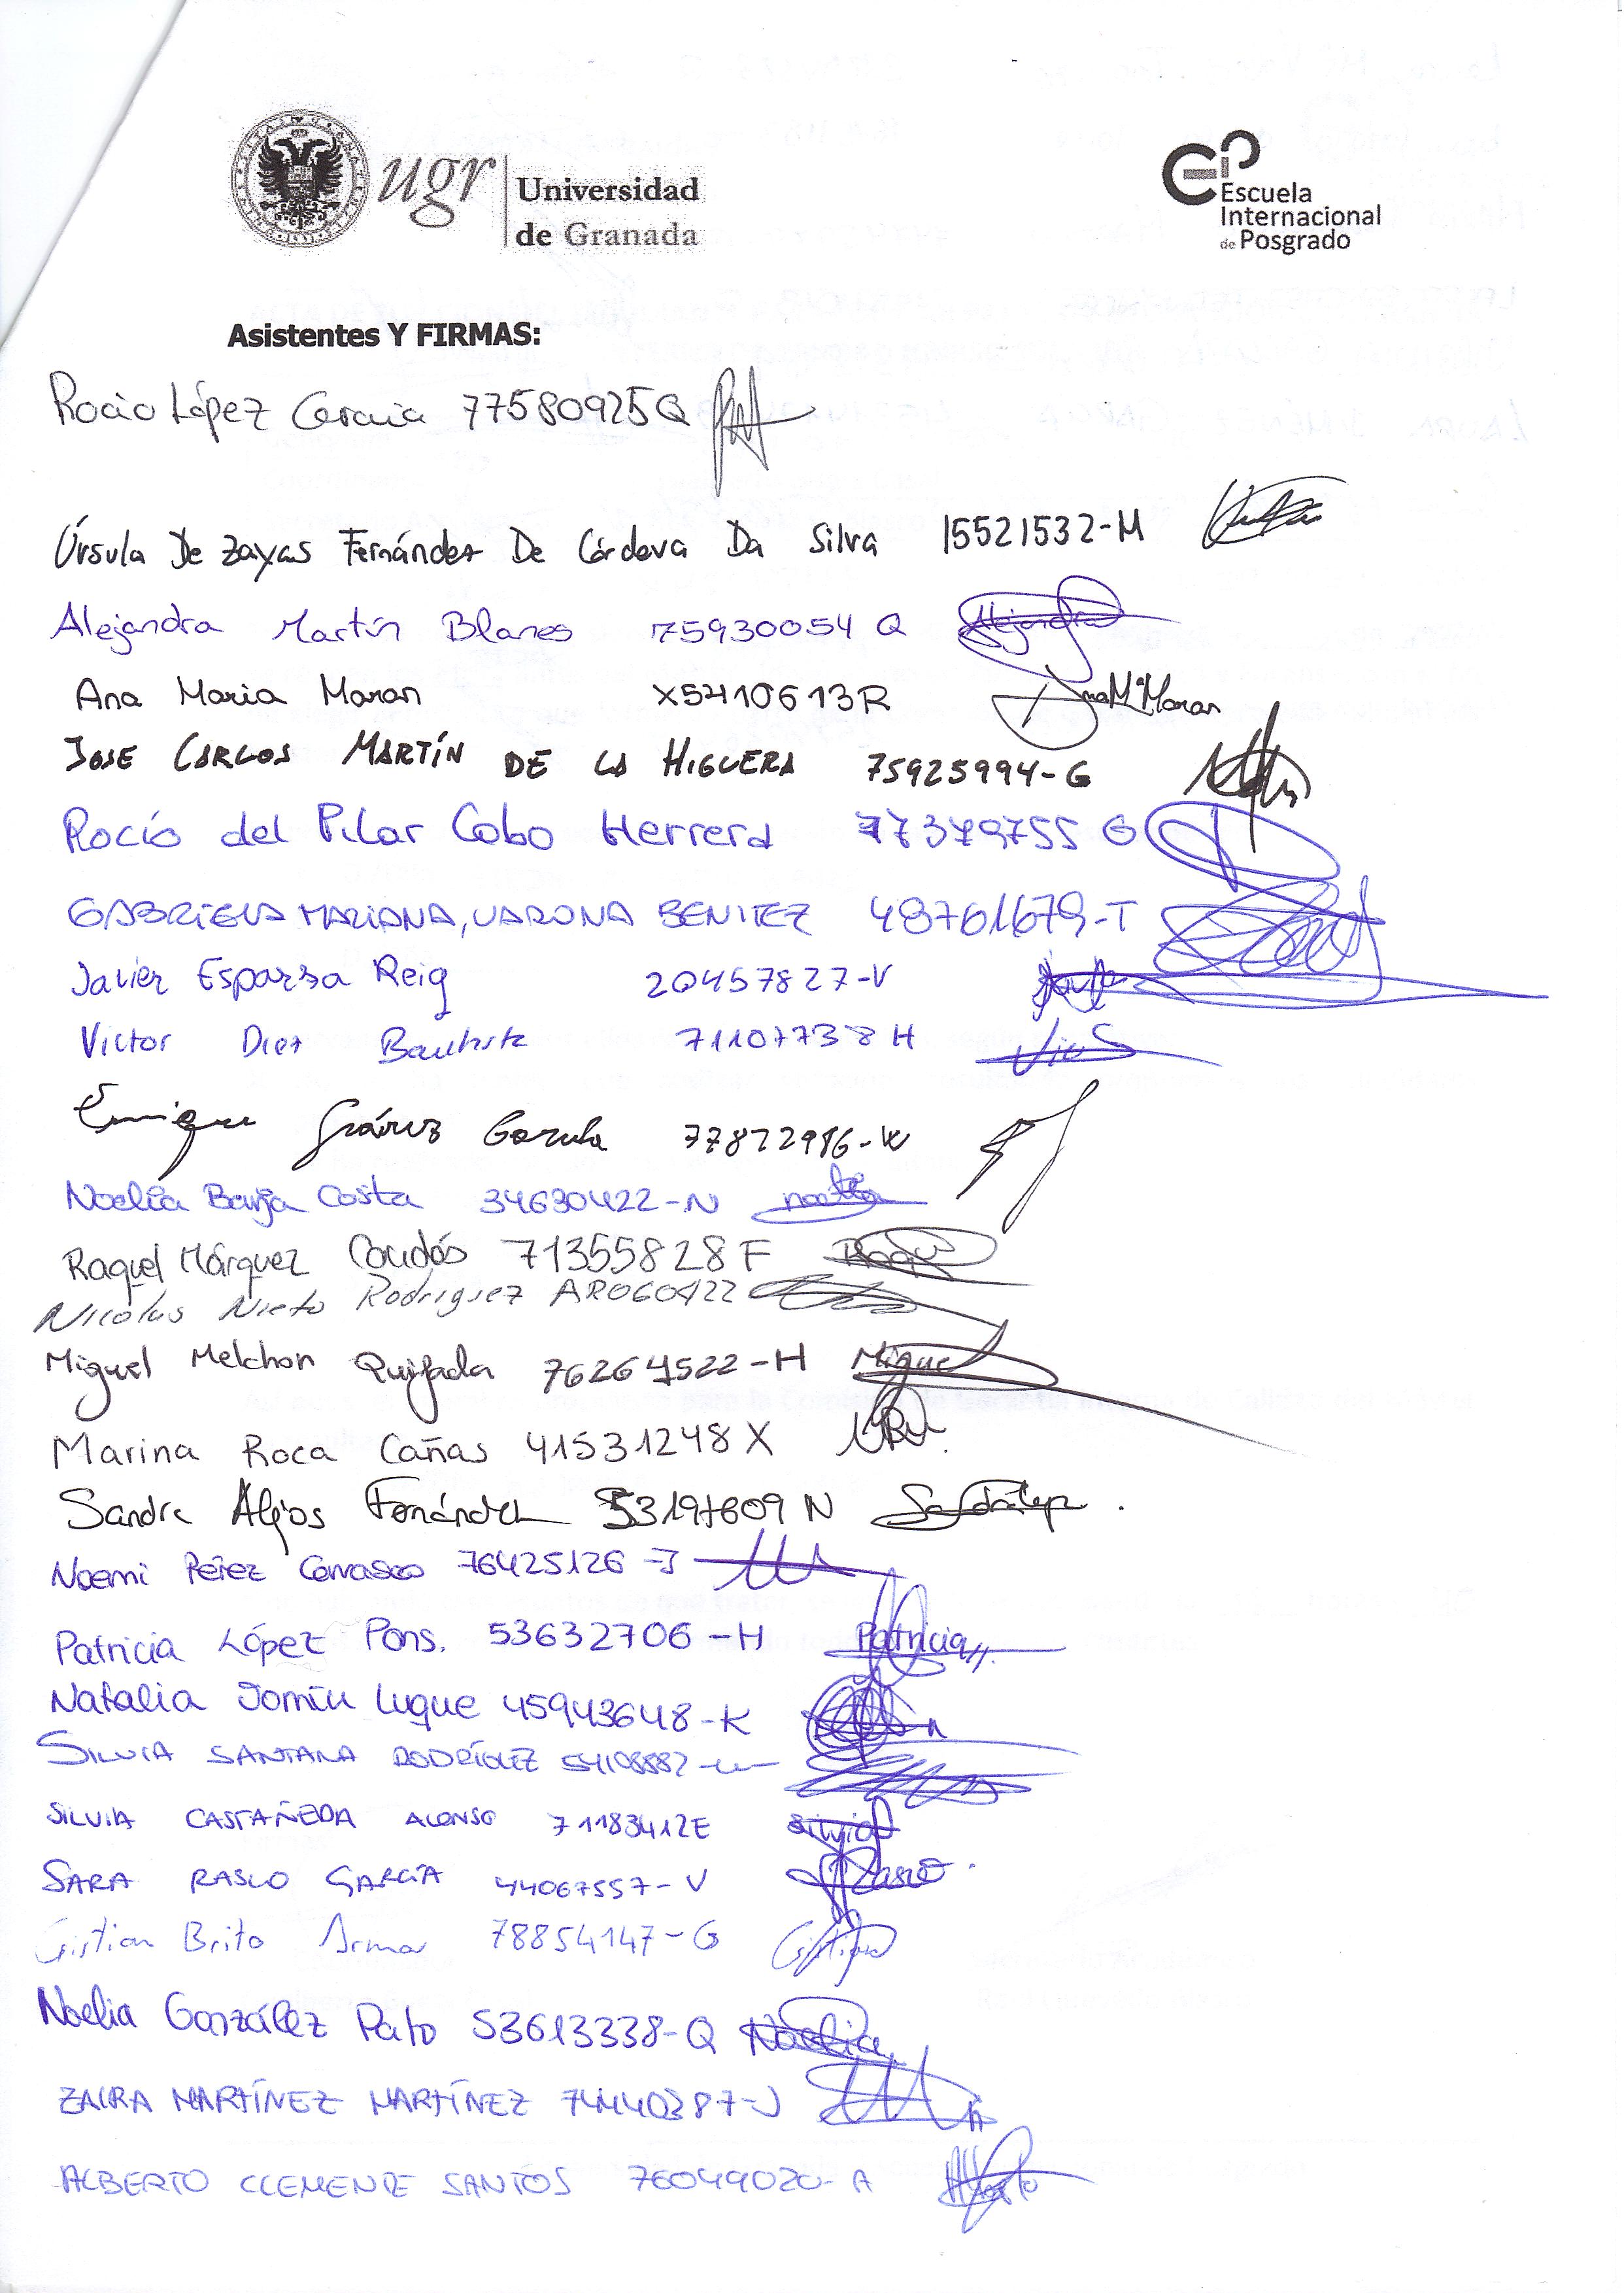 ugr Universidad
de Granada
Escuela
Internacional
de Posgrado
Asistentes Y FIRMAS:
Rocio López García 77580925Q
Úrsula De Zayas Fernández De Córdova Da Silva 15521532-M
Alejandra Martín Blanes 75930054 Q Alejandra
Ana Maria Moran X5410613R Ana Mª Moran
JOSE CARLOS MARTÍN DE LA HIGUERA 75925994-G
Rocío del Pilar Cobo Herrera 77379755 G
GABRIELA MARIANA, VARONA BENITEZ 48761679-T
Javier Esparza Reig 20457827-V
Victor Diez Bautista 71107738 H
Enrique Suárez 77872986-W
Noelia Barja Costa 34630422-N noelia
Raquel Márquez 71355828F Raquel
Nicolas Nieto Rodriguez AR060422
Miguel Melchon Quijada 76264522-H Miguel
Marina Roca Cañas 41531248X
Sandra Fernández 53197609 N
Noemi Pérez Carrasco 76425126-J
Patricia López Pons. 53632706-H Patricia
Natalia Luque 45943648-K
SILVIA SANTANA RODRÍGUEZ
SILVIA CASTAÑEDA ALONSO 71183412E Silvia
SARA RASCO GARCÍA 44067557-V Rasco
Cristian Brito Armas 78854147-G Cristian
Noelia González Pato 53613338-Q Noelia
ZAIRA MARTÍNEZ MARTÍNEZ 74440387-J
ALBERTO CLEMENTE SANTOS 76049020-A